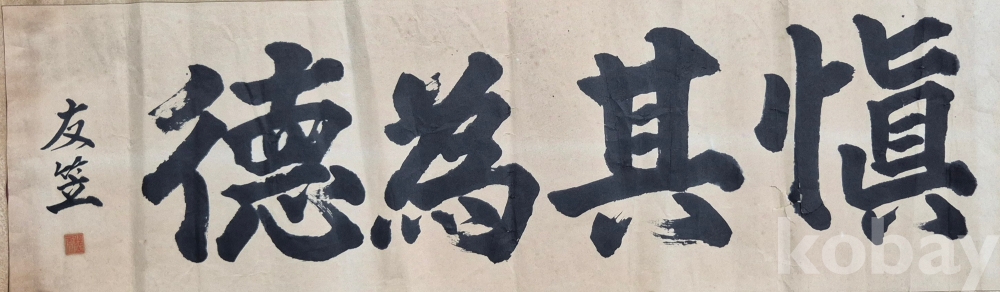 愼其為德
友笠
kobay